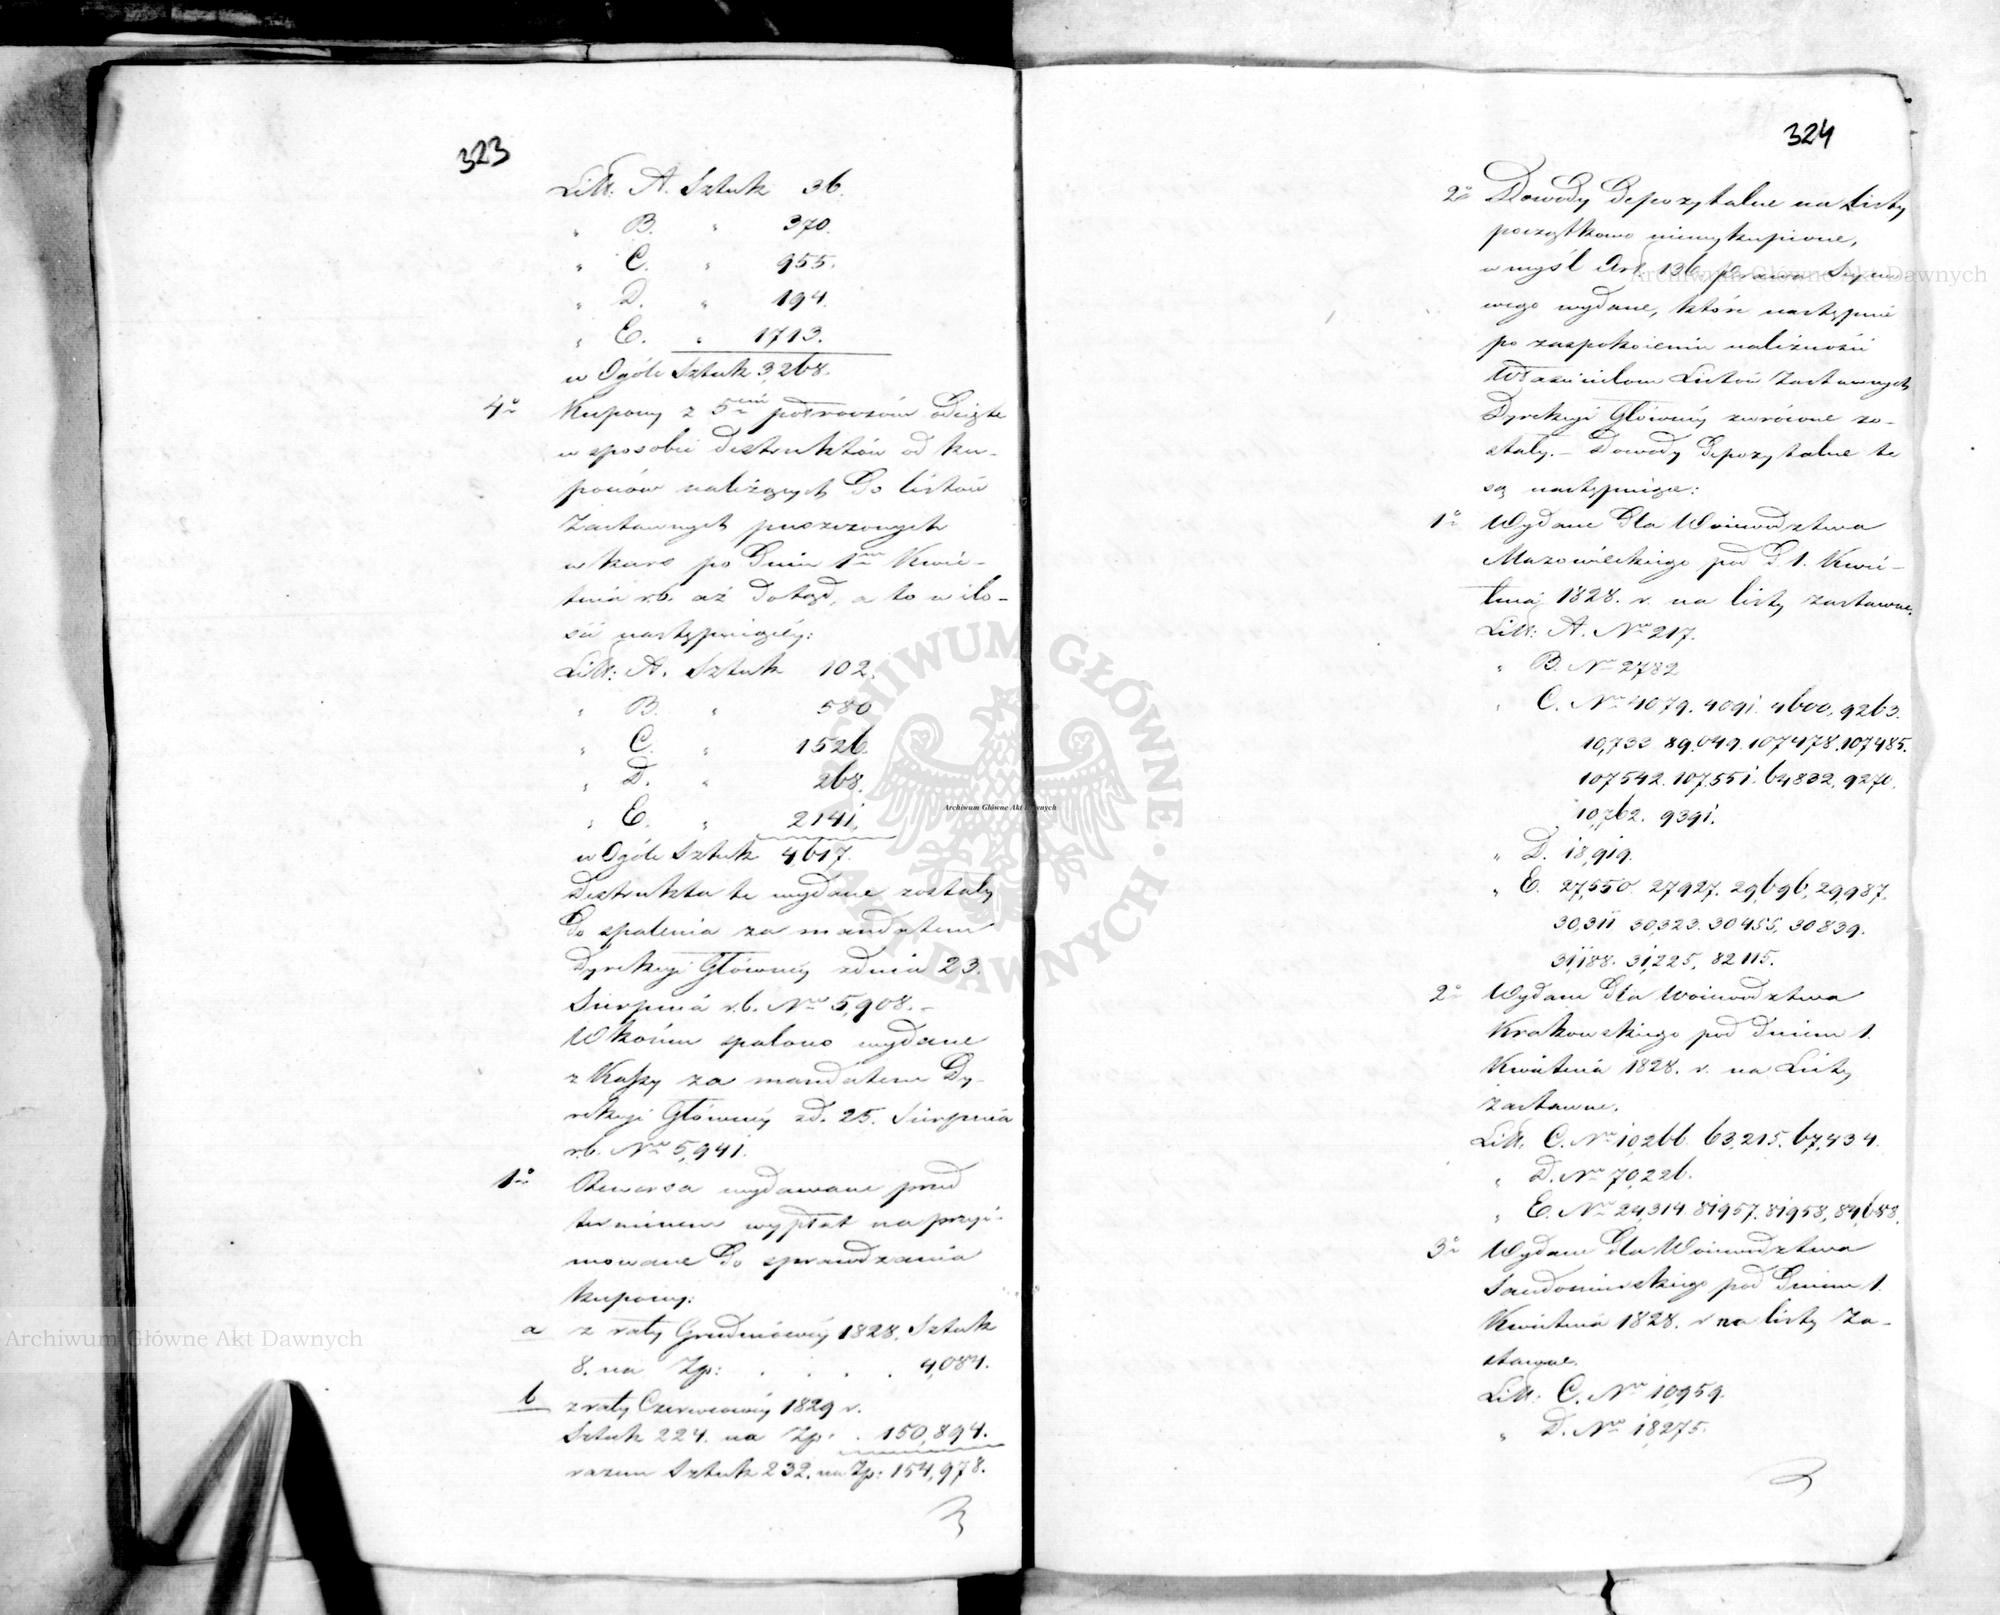 323
Litt: A. Sztuk 36.
„ B. „ 370.
„ C. „ 955.
„ D. „ 194.
„ E. „ 1713.
w Ogóle Sztuk 3,268.
4o Kupony z 5ciu półroczów odcięte
w sposobie destruktów od ku-
ponów należących do listów
Zastawnych puszczonych
w kurs po dniu 1m Kwie-
tnia r.b. aż dotąd, a to w ilo-
ści następującéy:
Litt: A. Sztuk 102.
„ B. „ 580
„ C. „ 1526.
„ D. „ 268.
„ E. „ 2141.
w Ogóle Sztuk 4,617.
Destrukta te wydane zostały
do spalenia za mandatem
Dyrekcyi Głównéy z dnia 23.
Sierpnia r.b. Nro 5,908.–
W końcu spalono wydane
z Kassy za mandatem Dy-
rekcyi Głównéy z d. 25. Sierpnia
r.b. Nro 5,941.
1o Rewersa wydawane przed
terminem wypłat na przyi-
mowane do sprawdzania
kupony:
a z raty Grudniowéy 1828. Sztuk
8. na Zp: . . . . 4,084.
b z raty Czerwcowéy 1829 r.
Sztuk 224. na Zp: . 150,894.
razem Sztuk 232. na Zp: 154,978.
324
2o Dowody depozytalne na Listy
początkowo niewykupione,
w myśl Art. 136 prawa Seymo
wego wydane, które następnie
po zaspokoieniu należności
Właścicielom Listów Zastawnych
Dyrekcyi Głównéy zwrócone zo-
stały.– Dowody depozytalne te
są następuiące:
1o Wydane dla Woiewództwa
Mazowieckiego pod d. 1. Kwie-
tnia 1828. r. na listy zastawne.
Litt: A. Nro 217.
„ B. Nro 2782
„ C. Nro 4079. 4091. 4600. 9263.
10,733 89,049. 107478. 107485.
107542. 107,551. 64832, 9270.
10,762. 9391.
„ D. 18,919.
„ E. 27,550. 27927. 29,696, 29,987.
30,311 30,323. 30455, 30839.
31,188. 31,225, 82115.
2o Wydane dla Woiewództwa
Krakowskiego pod dniem 1.
Kwietnia 1828. r. na Listy
zastawne.
Litt. C. Nro 10,266. 63,215. 67,434.
„ D. Nro 70,226.
„ E. Nro 24,314. 81957. 81958, 84,688.
3o Wydane dla Woiewództwa
Sandomierskiego pod dniem 1.
Kwietnia 1828. r na listy Za-
stawne.
Litt: C. Nro 10,959.
„ D. Nro 18,275.
Archiwum Główne Akt Dawnych
Archiwum Główne Akt Dawnych
Archiwum Główne Akt Dawnych
ARCHIWUM GŁÓWNE AKT DAWNYCH